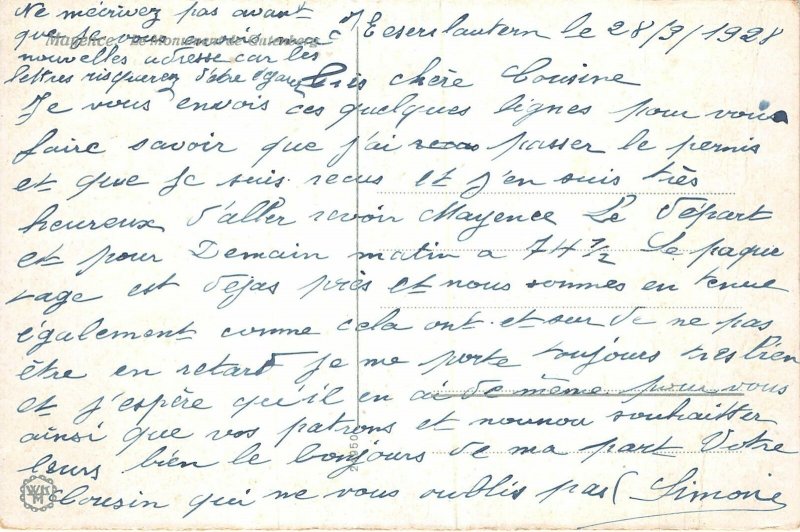 Ne mécrivez pas avant
que je vous envois mes
nouvelles adresse car les
lettres risquerez d'etre égarer
Mayence. Le Monument de Gutenberg
Eeserslautern le 28/9/1928
Très chère Cousine
Je vous envois ces quelques lignes pour vous
faire savoir que j'ai passer le permis
et que je suis recus et j'en suis très
heureux d'aller revoir Mayence Le départ
et pour Demain matin a 7H ½ Le paque
tage est dejas près et nous sommes en tenue
également comme cela ont et sur de ne pas
être en retard je me porte toujours très bien
et j'espère qu'il en ai de même pour vous
ainsi que vos patrons et nounou souhaitter
leurs bien le bonjours de ma part Votre
Cousin qui ne vous oublis pas Simone